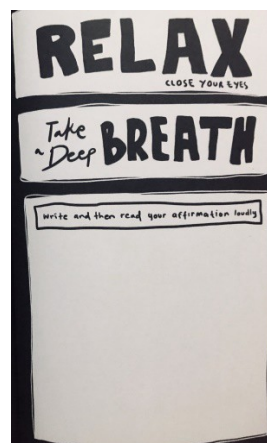 RELAX
CLOSE YOUR EYES
Take
a Deep BREATH
write and then read your affirmation loudly